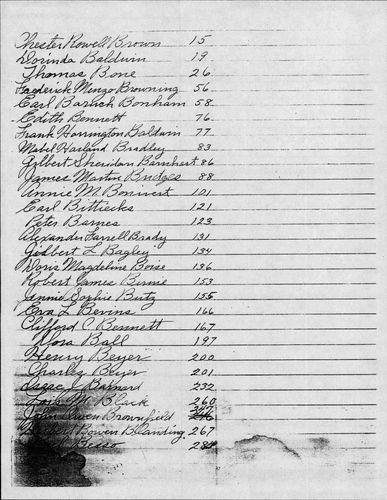 Chester Rowell Brown 15
Dorinda Baldwin 19
Thomas Bone 26
Frederick Menzo Browning 56
Earl Baruch Bonham 58
Edith Bennett 76
Frank Harrington Baldwin 77
Mabel Harland Bradley 83
Gilbert Sheridan Barnhart 86
James Martin Bridges 88
Annie M. Bonivert 101
Earl Bittiecks 121
Peter Barnes 123
Alexander Farrell Brady 131
Gilbert L Bagley 134
Doris Magdeline Boise 136
Robert James Birnie 153
Jennie Sophie Butz 155
Eva L Bevins 166
Clifford C Bennett 167
Nora Ball 197
Henry Beyer 200
Charley Beyer 201
Isaac J Barnard 232
M. Black 260
John Owen Brownfield
Bowen Blanding 267